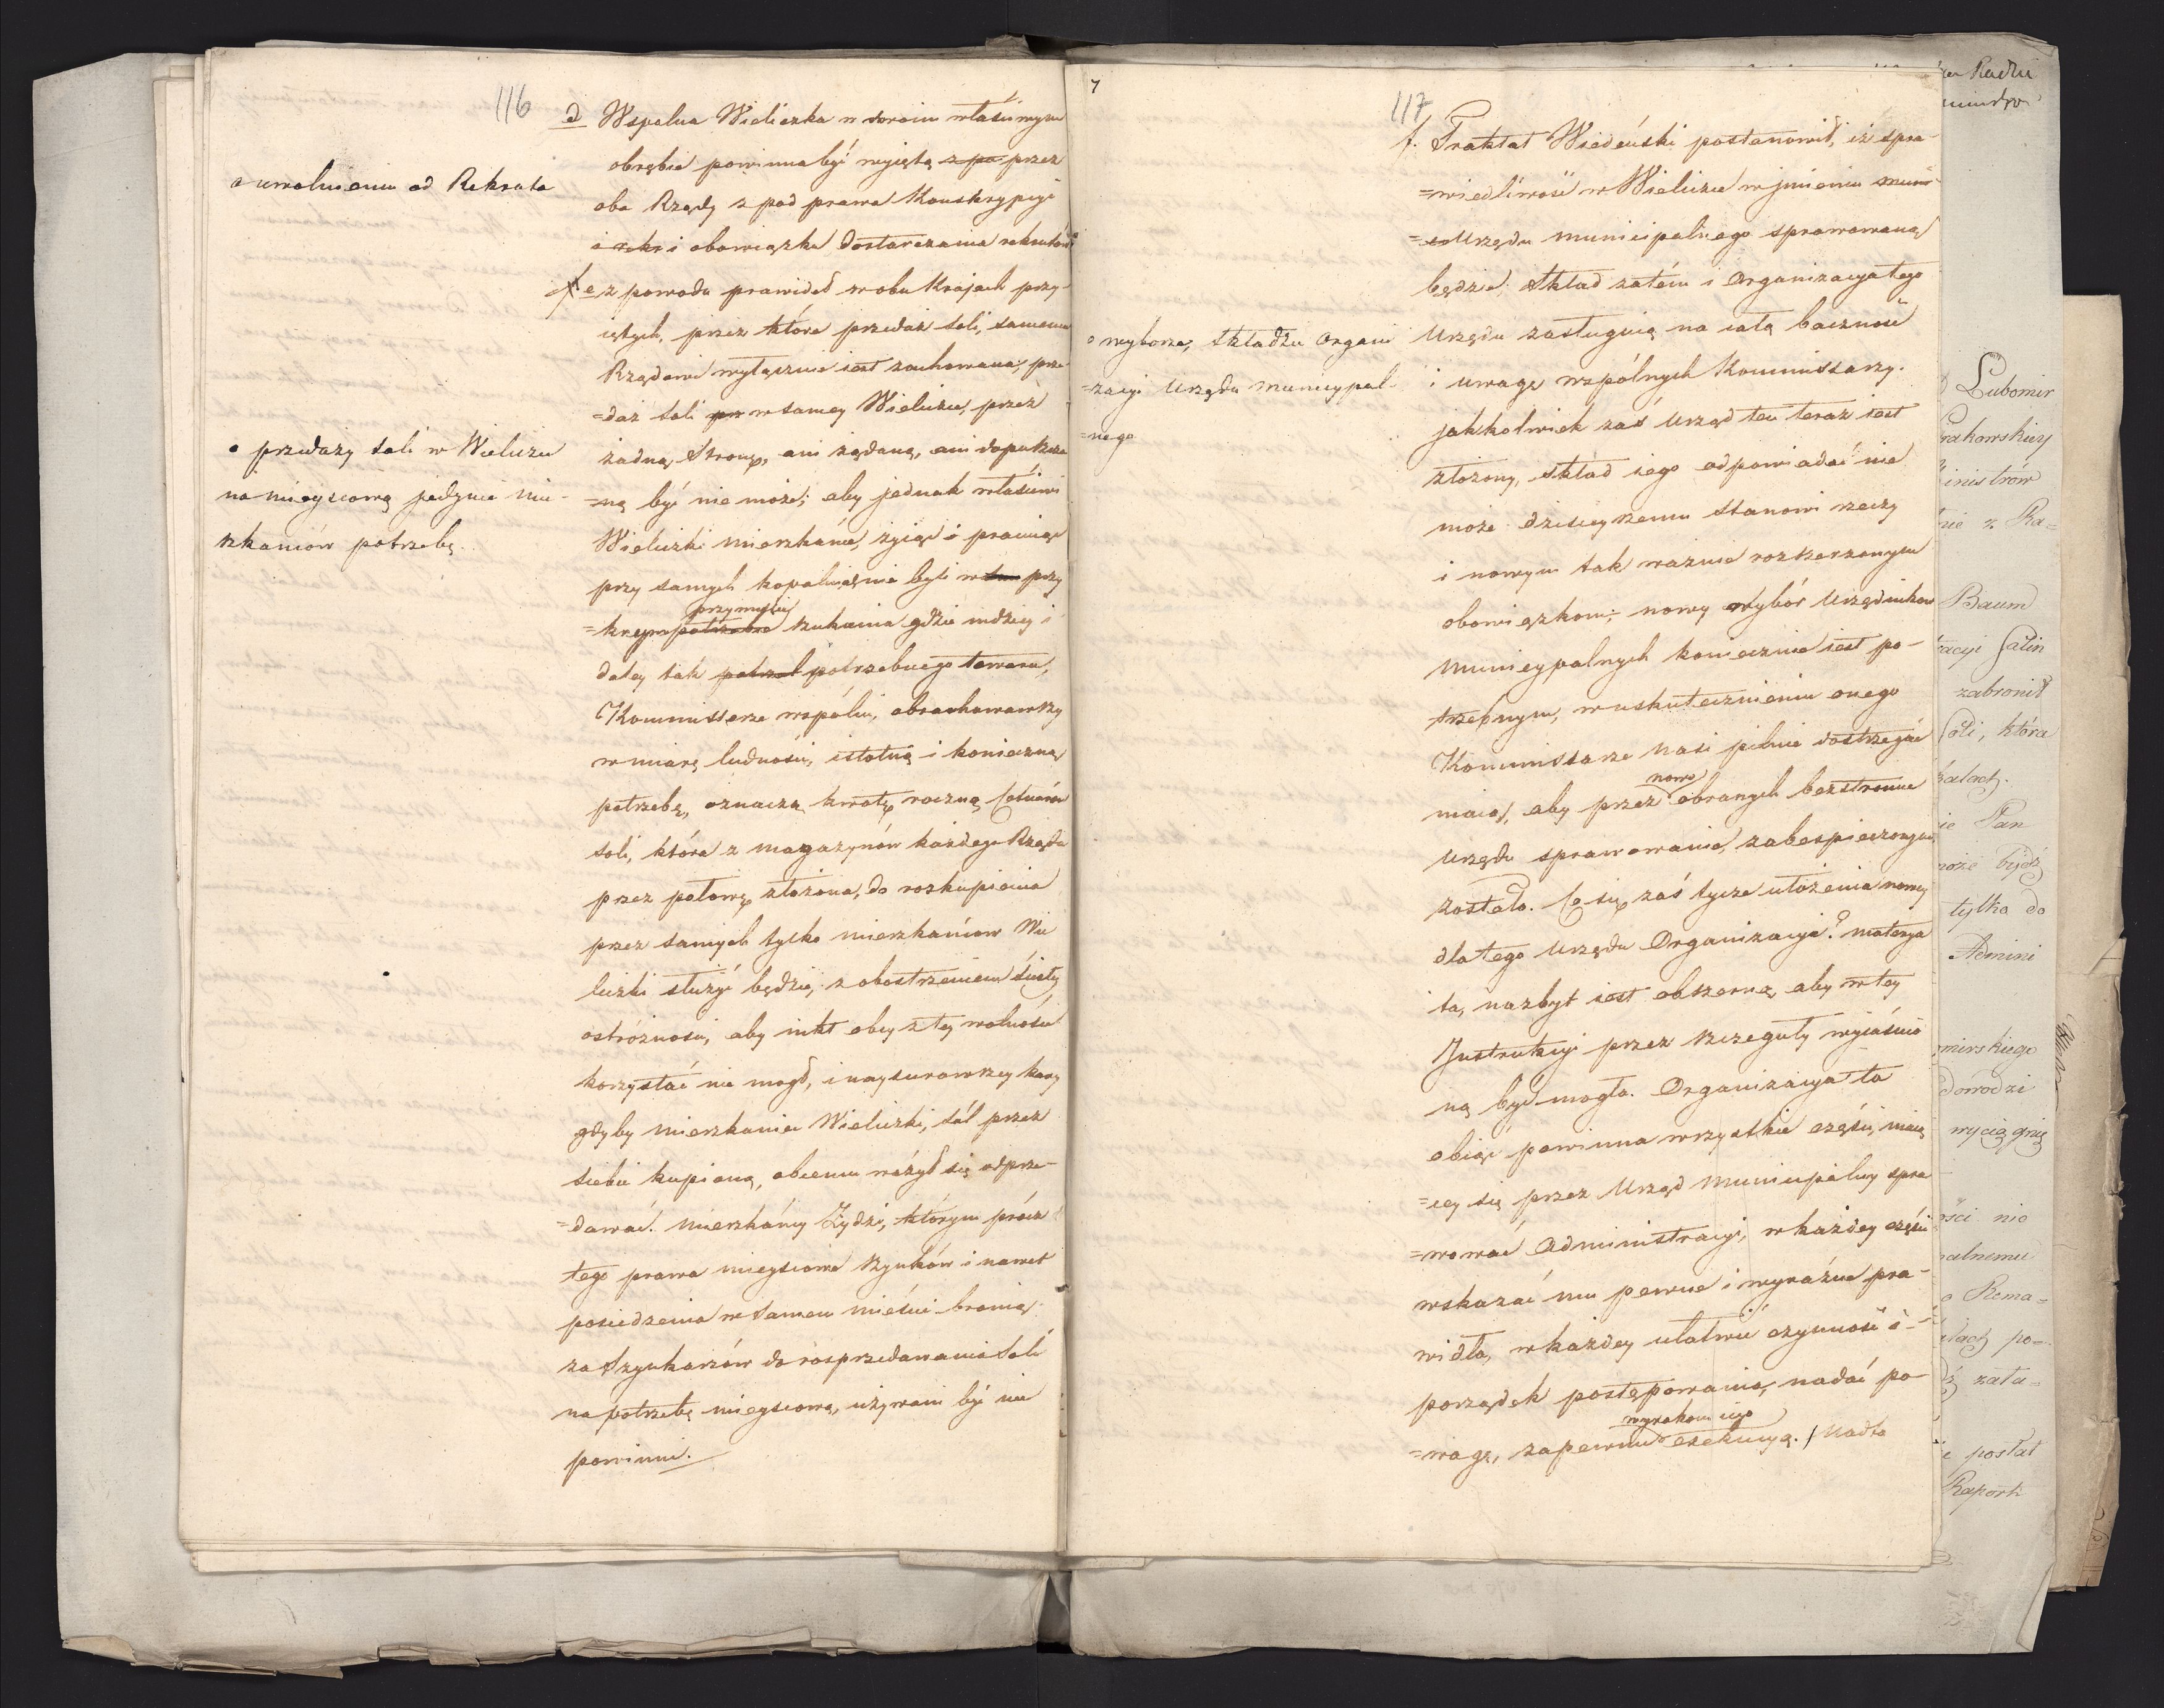 116
d Wspolna Wieliczka w swoim właściwym
obrębie powinna być wyjętą z po przez
o uwolnieniu od Rekruta
oba Rządy z pod prawa Konskrypcyi
i rekr i obowiązku dostarczania rekrutów
e z powodu prawideł w obu Krajach przy-
iętych, przez które przedaż soli, samemu
Rządowi wyłącznie iest zachowana, prze-
=daż soli prz w samey Wieliczce, przez
o przedaży soli w Wieliczce
na mieyscową jedynie mie-
szkańców potrzebę.
żadną Stronę, ani żądaną, ani dopuszczo
=ną być nie może; aby jednak właściwi
Wieliczki mieszkańcy, żyiąc i pracuiąc
przy samych kopalniach nie byli w przy
przymusie
=krym potrzebie szukania gdzie indziey i
daley tak potrzeb potrzebnego towaru,
Kommissarze wspólni, obrachowawszy
w miarę ludności, istotną i konieczną
potrzebę, oznaczą kwotę roczną Cetnarów
soli, która z magazynów każdego Rządu
przez połowę złożona, do rozkupienia
przez samych tylko mieszkańców Wie
liczki służyć będzie; z obostrzeniem ścisłey
ostróżności, aby nikt obcy z tey wolności
korzystać nie mogł, i naysurowszey kary
gdyby mieszkaniec Wieliczki, sól przez
siebie kupioną, obcemu ważył się odprze-
=dawać. Mieszkańcy Żydzi, którym prócz
tego prawa mieyscowe szynków i nawet
posiedzenia w samem mieście bronią
za Szynkarzów do rozprzedawania Soli
na potrzebę mieyscową, używani być nie
powinni.
7
117
f. Traktat Wiedeński postanowił, iż spra-
=wiedliwość w Wieliczce w jmieniu muni
=co Urzędu municipalnego sprawowaną
będzie; Skład zatém i Organizacya tego
o wyborze, składzie Organi
=zacyi Urzędu Municypal-
=nego
Urzędu zasługuią na całą baczność
i uwagę wspólnych Kommissarzy.
jakkolwiek zaś Urząd ten teraz iest
złożony, skład iego odpowiadać nie
może dzisieyszemu stanowi rzeczy
i nowym tak ważnie rozszerzonym
obowiązkom; nowy wybór Urzędników
Municypalnych koniecznie iest po-
trzebnym, w uskutecznieniu onego
Kommissarze nasi pilnie dostrzegać
nowo
maią, aby przez obranych bezstronne
Urzędu sprawowanie, zabespieczonym
zostało. Co się zaś tycze ułożenia nowey
dla tego Urzędu Organizacyi? materya
ta, nazbyt iest obszerną, aby w tey
Instrukcyi przez szczeguły wyiaśnio
ną być mogła. Organizacya ta
obiąć powinna wszystkie części, maią
=cey się przez Urząd Municipalny spra
=wować Administracyi; w każdey części
wskazać mu pewne i wyraźne pra-
widła, w każdey ułatwić czynność i
porządek postępowania, nadać po-
wyrokom iego
=wagę, zapewnić exekucyą. / Nadto
Radzie
Lubomir
Krakowskiey
inistrów
nie z Ra=
Baum
racyi Salin
zabronił
Soli, która
Pan
może bydź
tylko do
Admini
mirskiego
dowodzi
wyciągnię
ści nie
alnemu
o Rema=
po=
zału=
posłał
Raport